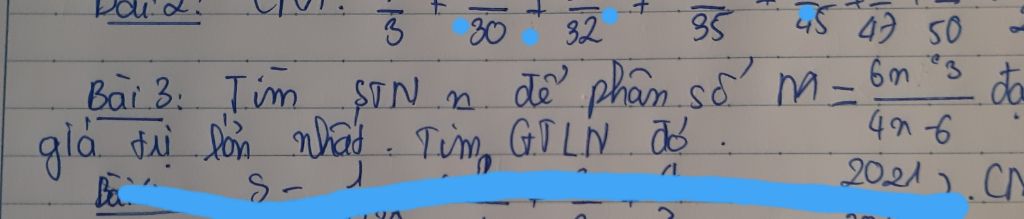 Bài 2: CM: 3 + 30 + 32 + 35 45 + 47 50
Bài 3: Tìm STN n để phân số M = 6n - 3 / 4n - 6 đạ
giá trị lớn nhất. Tìm GTLN đó.
Bài S = 1 2021 ). CM